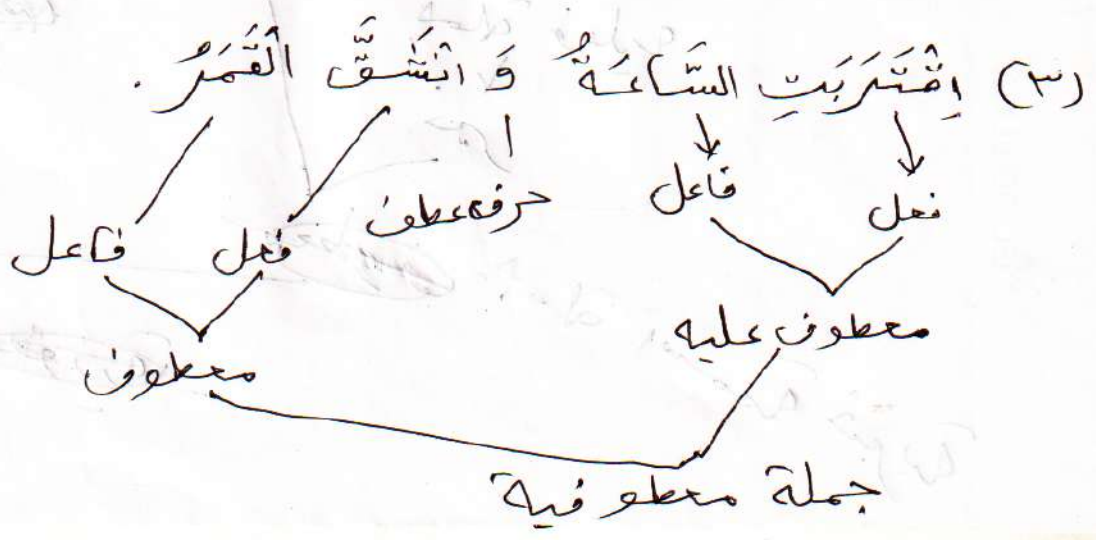 (٣) اِقْتَرَبَتِ السَّاعَةُ وَ انْشَقَّ الْقَمَرُ .
فعل فاعل حرف عطف فعل فاعل
معطوف عليه معطوف
جملة معطوفية